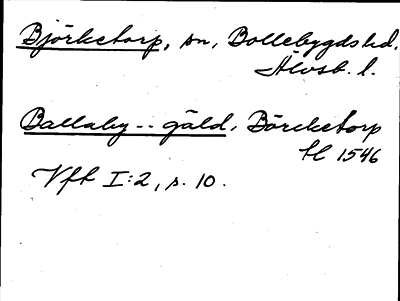 Björketorp, sn, Bollebygds hd.
Älvsb. l.
Ballaby -- gäld, Börcketorp
tl 1546
Vft I:2, s. 10.